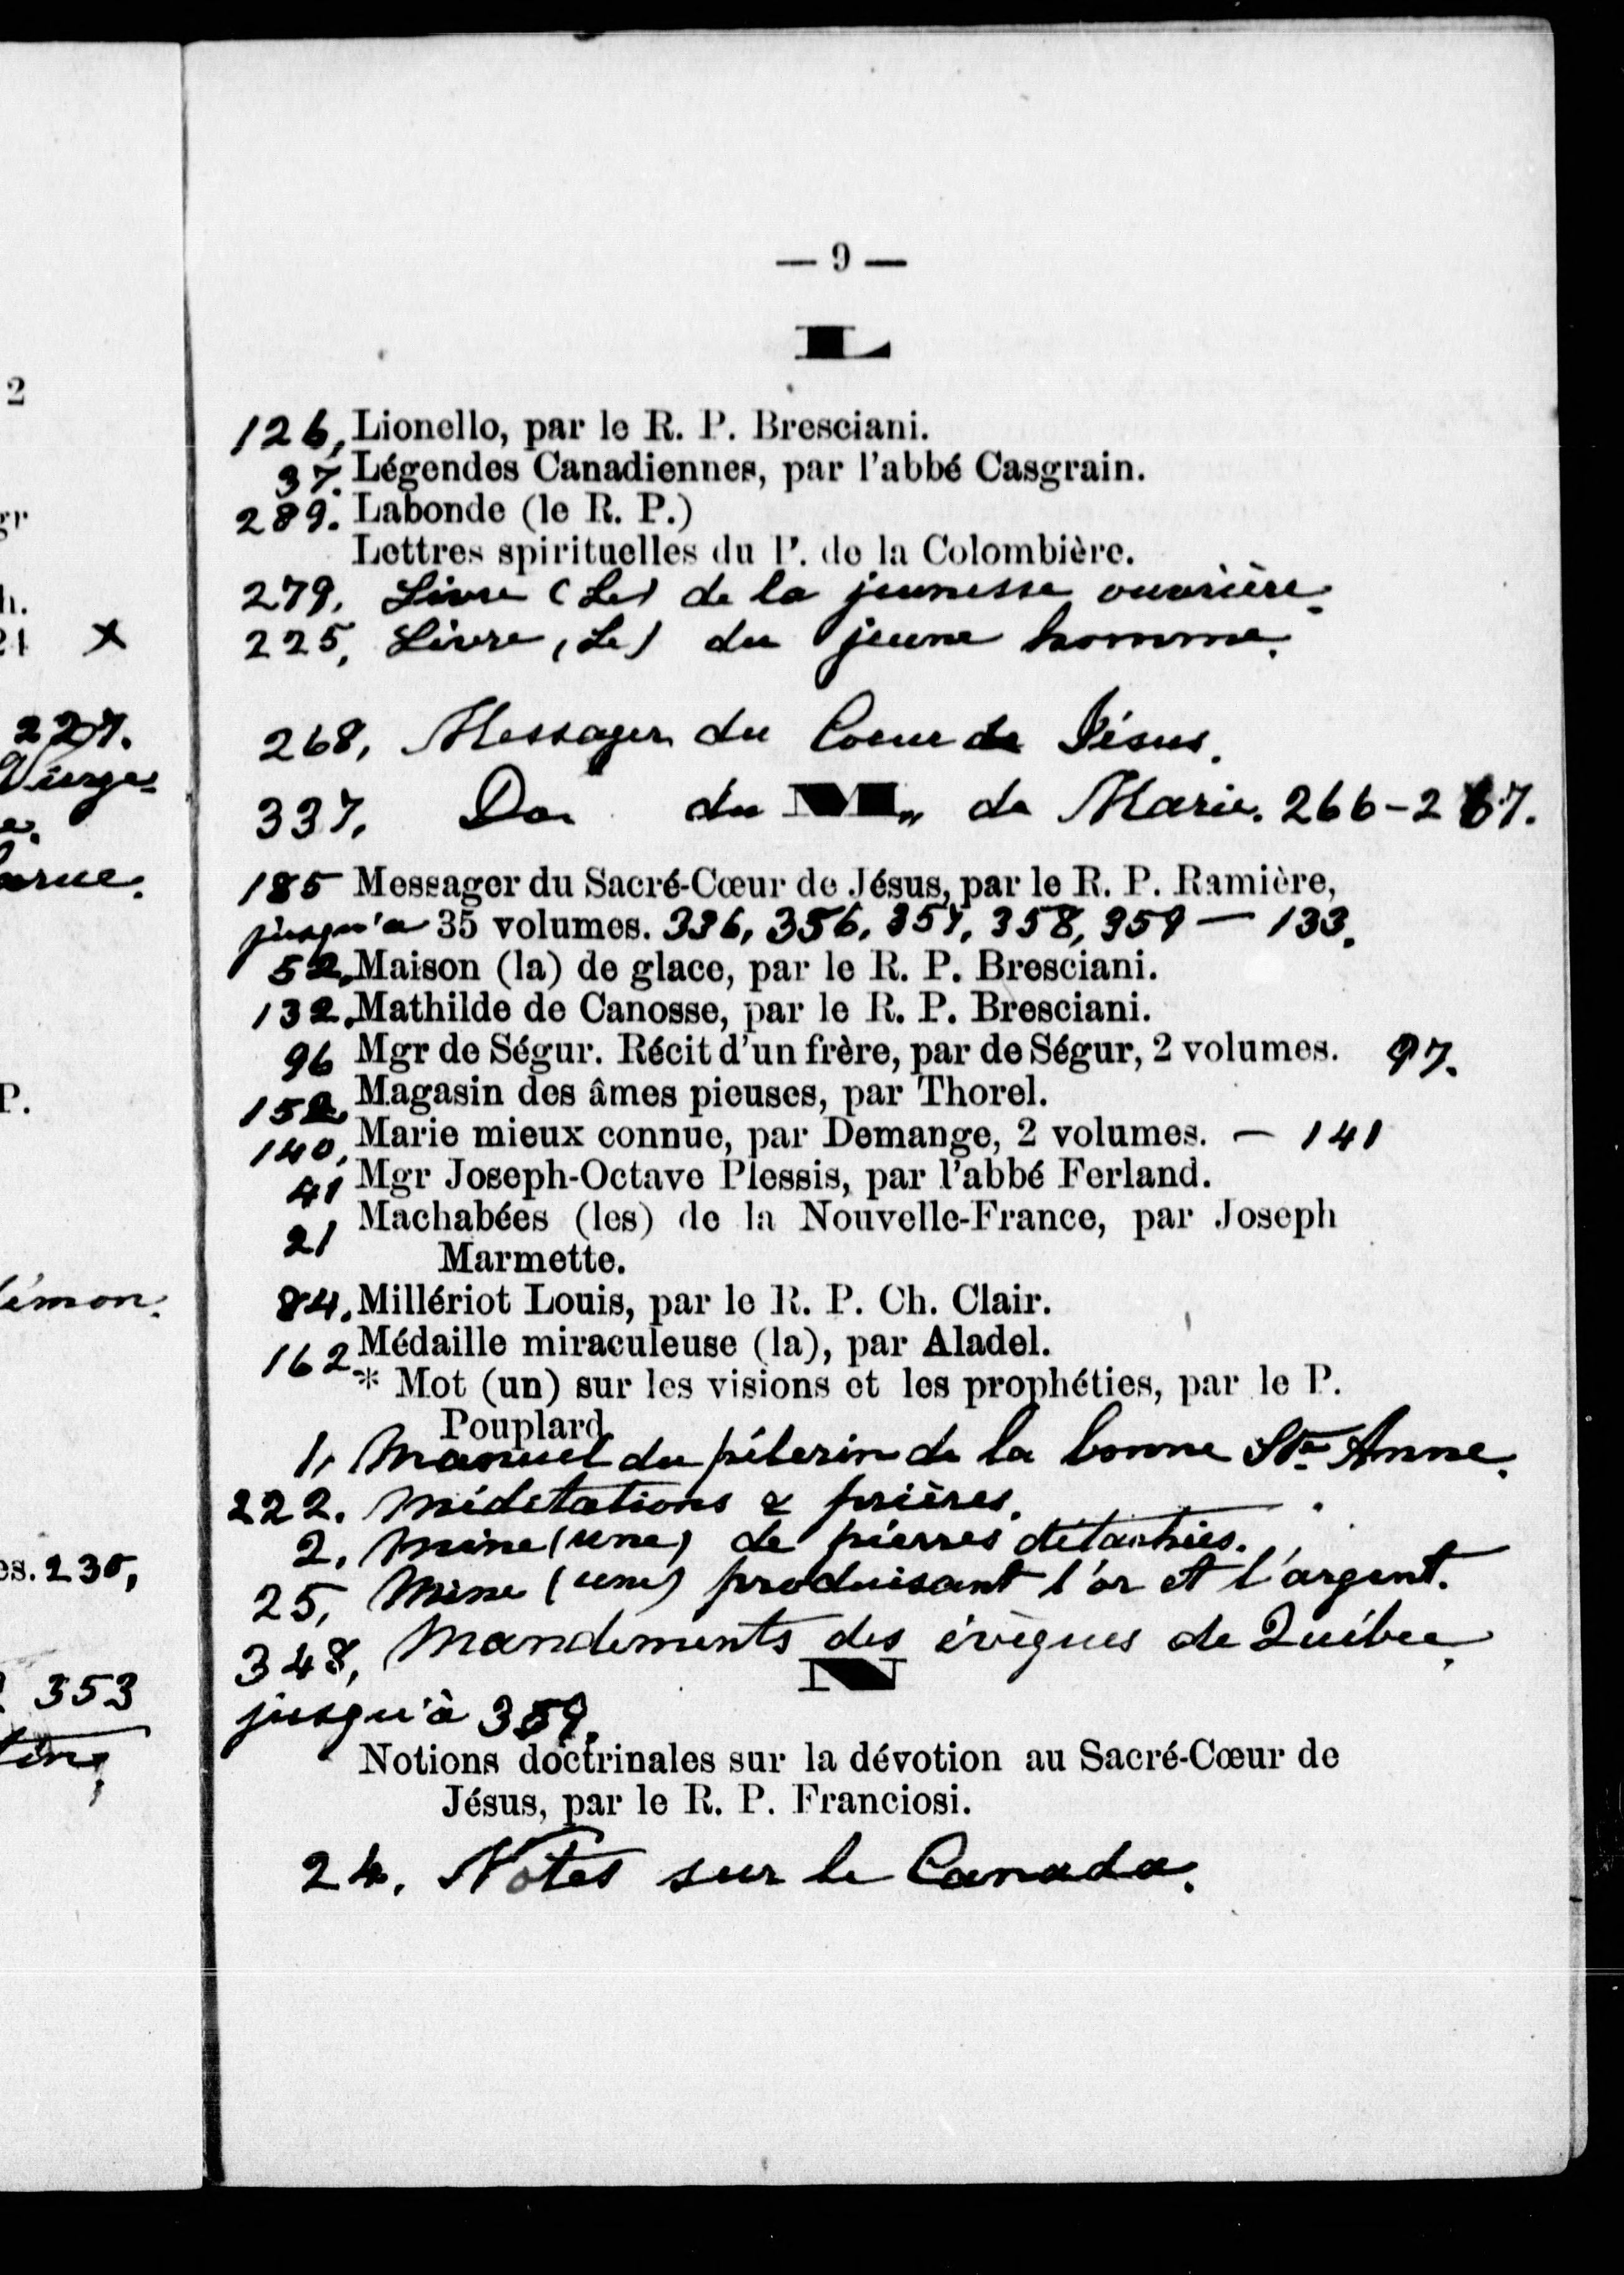 — 9 —
L
126, Lionello, par le R. P. Bresciani.
37. Légendes Canadiennes, par l'abbé Casgrain.
289. Labonde (le R. P.)
Lettres spirituelles du P. de la Colombière.
279, Livre (Le) de la jeunesse ouvrière.
225, Livre, (Le) du jeune homme.
268, Messager du Coeur de Jésus.
337, Do du M „ de Marie. 266-267.
185 Messager du Sacré-Cœur de Jésus, par le R. P. Ramière,
jusqu'a 35 volumes. 336, 356, 357, 358, 359 — 133.
52, Maison (la) de glace, par le R. P. Bresciani.
132, Mathilde de Canosse, par le R. P. Bresciani.
96 Mgr de Ségur. Récit d'un frère, par de Ségur, 2 volumes. 97.
152, Magasin des âmes pieuses, par Thorel.
140, Marie mieux connue, par Demange, 2 volumes. — 141
41 Mgr Joseph-Octave Plessis, par l'abbé Ferland.
21 Machabées (les) de la Nouvelle-France, par Joseph
Marmette.
84, Millériot Louis, par le R. P. Ch. Clair.
162 Médaille miraculeuse (la), par Aladel.
* Mot (un) sur les visions et les prophéties, par le P.
Pouplard
1, Manuel du pélerin de la bonne Ste Anne.
222. Méditations & prières.
2, Mine (une) de pierres détachées.
25, Mine (une) produisant l'or et l'argent.
348, Mandements des évèques de Québec.
N
jusqu'à 359.
Notions doctrinales sur la dévotion au Sacré-Cœur de
Jésus, par le R. P. Franciosi.
24. Notes sur le Canada.
2
gr
h.
21 x
227.
Vierge
arue.
P.
es. 230,
353